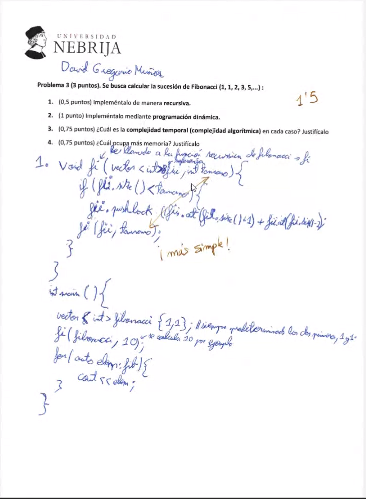 UNIVERSIDAD
NEBRIJA
David Gregorio Muñoz
Problema 3 (3 puntos). Se busca calcular la sucesión de Fibonacci (1, 1, 2, 3, 5,...) :
1. (0,5 puntos) Impleméntalo de manera recursiva.
1'5
2. (1 punto) Impleméntalo mediante programación dinámica.
3. (0,75 puntos) ¿Cuál es la complejidad temporal (complejidad algorítmica) en cada caso? Justifícalo
4. (0,75 puntos) ¿Cuál ocupa más memoria? Justifícalo
a la función recursiva de fibonacci = fi
1. void fi (vector <int> int tamano) {
if ( .size () < tamano) {
.push_back
fi (fii, tamano);
}
¡más simple!
}
int main () {
vector <int> fibonacci {1,1}; los dos primeros, 1 y 1
fi (fibonacci, 10); 10 por ejemplo
for (auto elem: fib) {
cout << elem;
}
}